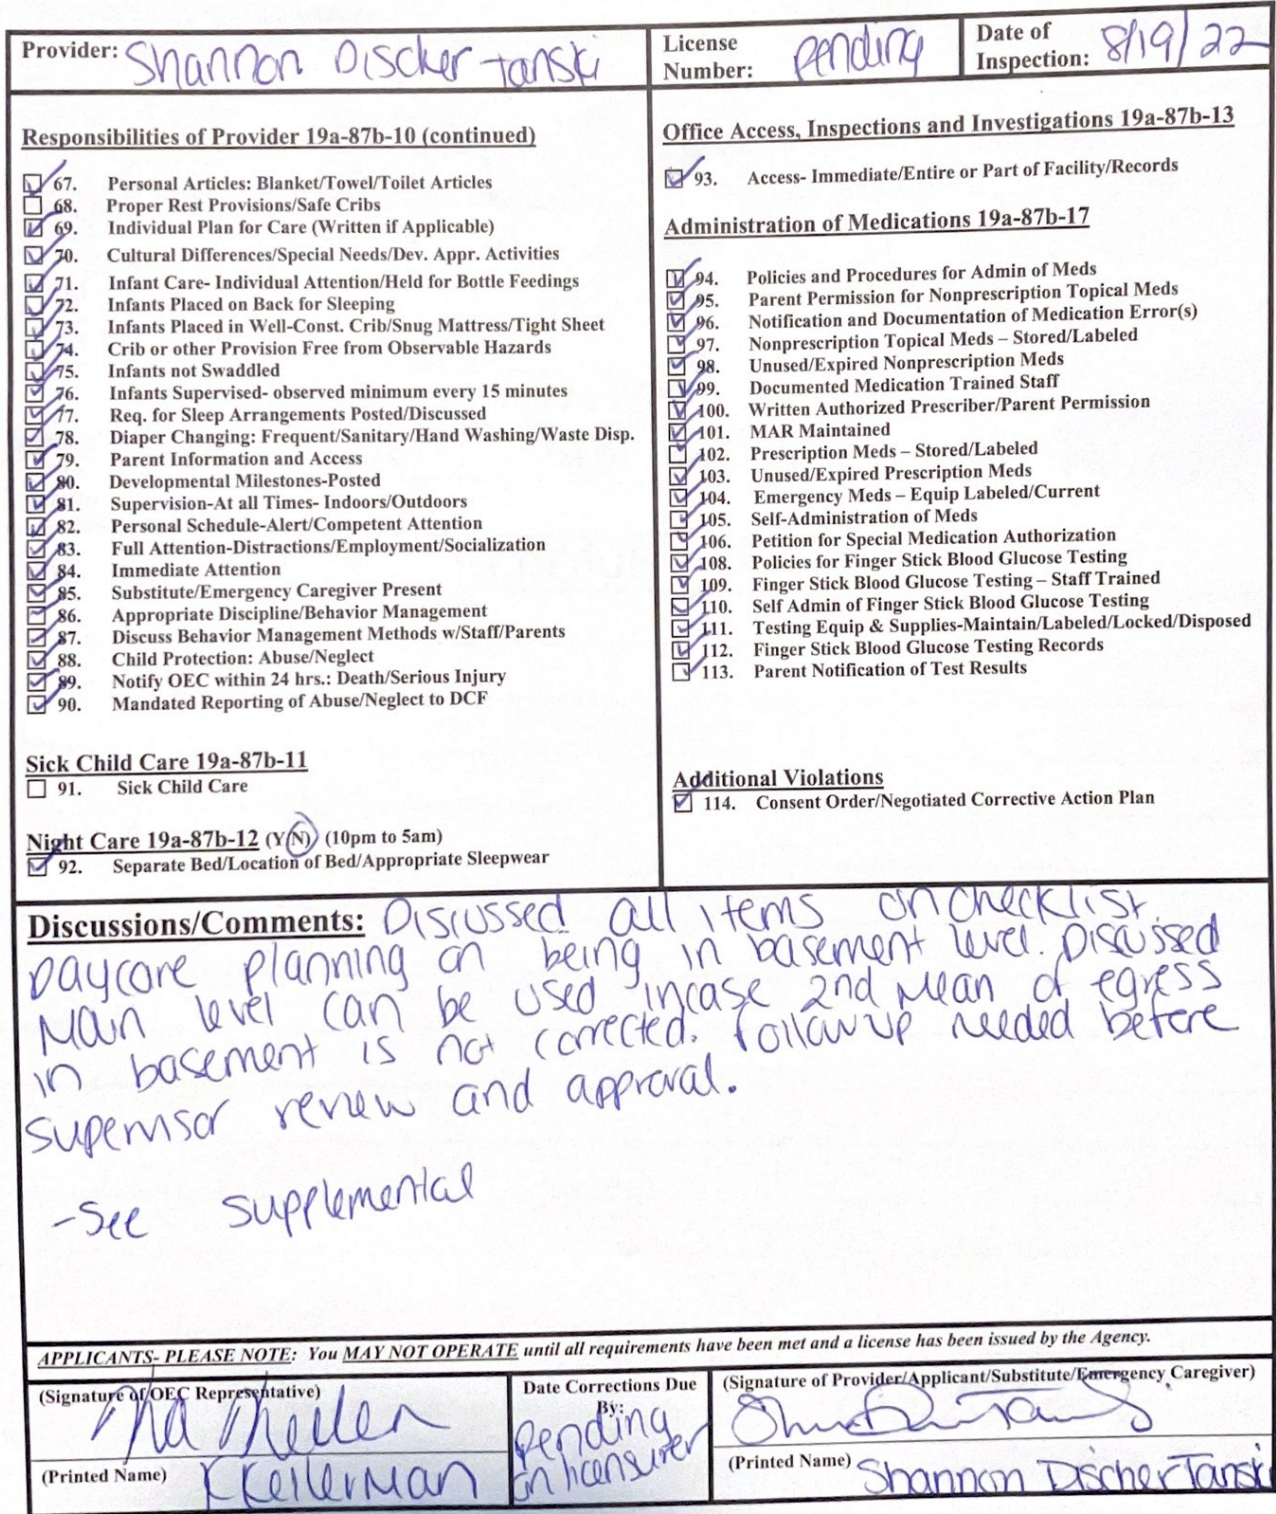 Provider: Shannon Discher Tanski
License Number: pending
Date of Inspection: 8/19/22
Responsibilities of Provider 19a-87b-10 (continued)
67. Personal Articles: Blanket/Towel/Toilet Articles
68. Proper Rest Provisions/Safe Cribs
69. Individual Plan for Care (Written if Applicable)
70. Cultural Differences/Special Needs/Dev. Appr. Activities
71. Infant Care- Individual Attention/Held for Bottle Feedings
72. Infants Placed on Back for Sleeping
73. Infants Placed in Well-Const. Crib/Snug Mattress/Tight Sheet
74. Crib or other Provision Free from Observable Hazards
75. Infants not Swaddled
76. Infants Supervised- observed minimum every 15 minutes
77. Req. for Sleep Arrangements Posted/Discussed
78. Diaper Changing: Frequent/Sanitary/Hand Washing/Waste Disp.
79. Parent Information and Access
80. Developmental Milestones-Posted
81. Supervision-At all Times- Indoors/Outdoors
82. Personal Schedule-Alert/Competent Attention
83. Full Attention-Distractions/Employment/Socialization
84. Immediate Attention
85. Substitute/Emergency Caregiver Present
86. Appropriate Discipline/Behavior Management
87. Discuss Behavior Management Methods w/Staff/Parents
88. Child Protection: Abuse/Neglect
89. Notify OEC within 24 hrs.: Death/Serious Injury
90. Mandated Reporting of Abuse/Neglect to DCF
Sick Child Care 19a-87b-11
91. Sick Child Care
Night Care 19a-87b-12 (Y/N) (10pm to 5am)
92. Separate Bed/Location of Bed/Appropriate Sleepwear
Office Access, Inspections and Investigations 19a-87b-13
93. Access- Immediate/Entire or Part of Facility/Records
Administration of Medications 19a-87b-17
94. Policies and Procedures for Admin of Meds
95. Parent Permission for Nonprescription Topical Meds
96. Notification and Documentation of Medication Error(s)
97. Nonprescription Topical Meds – Stored/Labeled
98. Unused/Expired Nonprescription Meds
99. Documented Medication Trained Staff
100. Written Authorized Prescriber/Parent Permission
101. MAR Maintained
102. Prescription Meds – Stored/Labeled
103. Unused/Expired Prescription Meds
104. Emergency Meds – Equip Labeled/Current
105. Self-Administration of Meds
106. Petition for Special Medication Authorization
108. Policies for Finger Stick Blood Glucose Testing
109. Finger Stick Blood Glucose Testing – Staff Trained
110. Self Admin of Finger Stick Blood Glucose Testing
111. Testing Equip & Supplies-Maintain/Labeled/Locked/Disposed
112. Finger Stick Blood Glucose Testing Records
113. Parent Notification of Test Results
Additional Violations
114. Consent Order/Negotiated Corrective Action Plan
Discussions/Comments: Discussed all items on checklist.
Daycare planning on being in basement level. Discussed
Main level can be used incase 2nd Mean of egress
in basement is not corrected. Follow up needed before
supervisor review and approval.
-See supplemental
APPLICANTS- PLEASE NOTE: You MAY NOT OPERATE until all requirements have been met and a license has been issued by the Agency.
(Signature of OEC Representative)
(Printed Name) K Kellerman
Date Corrections Due
By:
pending
on licensure
(Signature of Provider/Applicant/Substitute/Emergency Caregiver)
(Printed Name) Shannon Discher Tanski